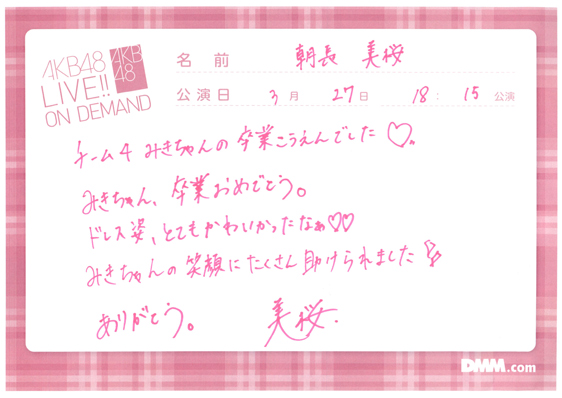 AKB48
LIVE!!
ON DEMAND
AKB
48
名前 朝長 美桜
公演日 3月 27日 18:15 公演
チーム4 みきちゃんの卒業こうえんでした♡。
みきちゃん、卒業おめでとう。
ドレス姿、とてもかわいかったなぁ♡♡
みきちゃんの笑顔にたくさん助けられました
ありがとう。 美桜.
DMM.com